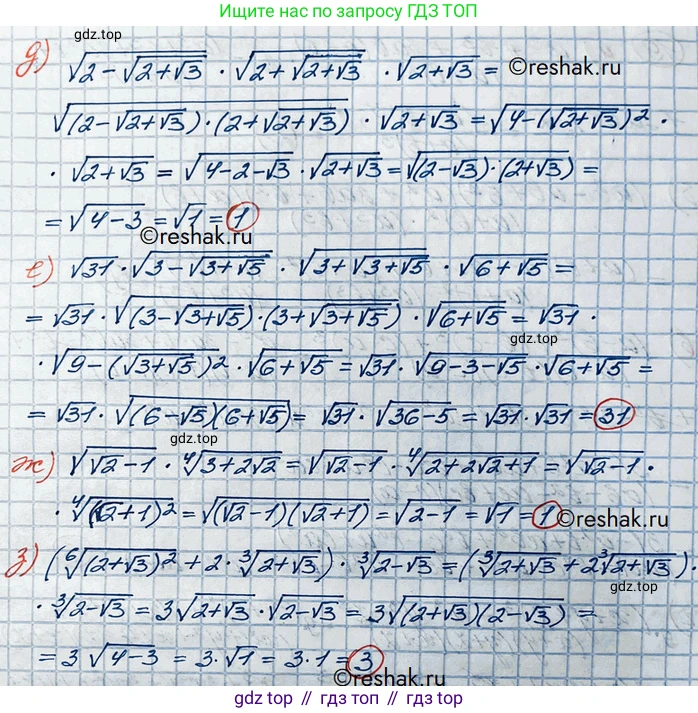 Ищите нас по запросу ГДЗ ТОП
gdz.top
д) √(2-√(2+√3)) · √(2+√(2+√3)) · √(2+√3) = ©reshak.ru
√((2-√(2+√3))·(2+√(2+√3))) · √(2+√3) = √(4-(√(2+√3))²) ·
gdz.top
· √(2+√3) = √(4-2-√3) · √(2+√3) = √((2-√3)·(2+√3)) =
= √(4-3) = √1 = 1
©reshak.ru
е) √31 · √(3-√(3+√5)) · √(3+√(3+√5)) · √(6+√5) =
= √31 · √((3-√(3+√5))·(3+√(3+√5))) · √(6+√5) = √31 ·
gdz.top
· √(9-(√(3+√5))²) · √(6+√5) = √31 · √(9-3-√5) · √(6+√5) =
= √31 · √((6-√5)(6+√5)) = √31 · √(36-5) = √31 · √31 = 31
gdz.top
ж) √(√2-1) · ⁴√(3+2√2) = √(√2-1) · ⁴√(2+2√2+1) = √(√2-1) ·
· ⁴√((√2+1)²) = √((√2-1)(√2+1)) = √(2-1) = √1 = 1 ©reshak.ru
gdz.top
з) (⁶√((2+√3)²) + 2 · ³√(2+√3)) · ³√(2-√3) = (³√(2+√3) + 2³√(2+√3)) ·
· ³√(2-√3) = 3√(2+√3) · √(2-√3) = 3√((2+√3)(2-√3)) =
= 3√(4-3) = 3·√1 = 3·1 = 3
©reshak.ru
gdz top // гдз топ // gdz.top // гдз.топ